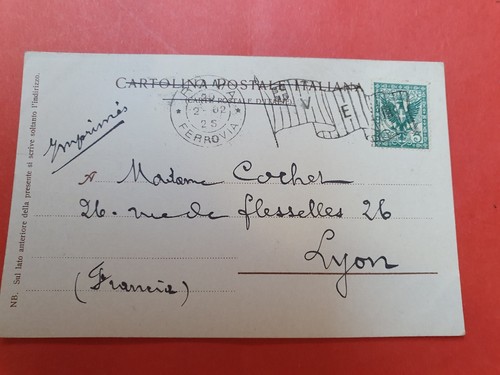 CARTOLINA POSTALE ITALIANA
(CARTE POSTALE D'ITALIE)
2-02
25
FERROVIA
V
E
5
Imprimés
A Madame Cochet
26. rue de flesselles 26
Lyon
(Francia)
NB. Sul lato anteriore della presente si scrive soltanto l'indirizzo.